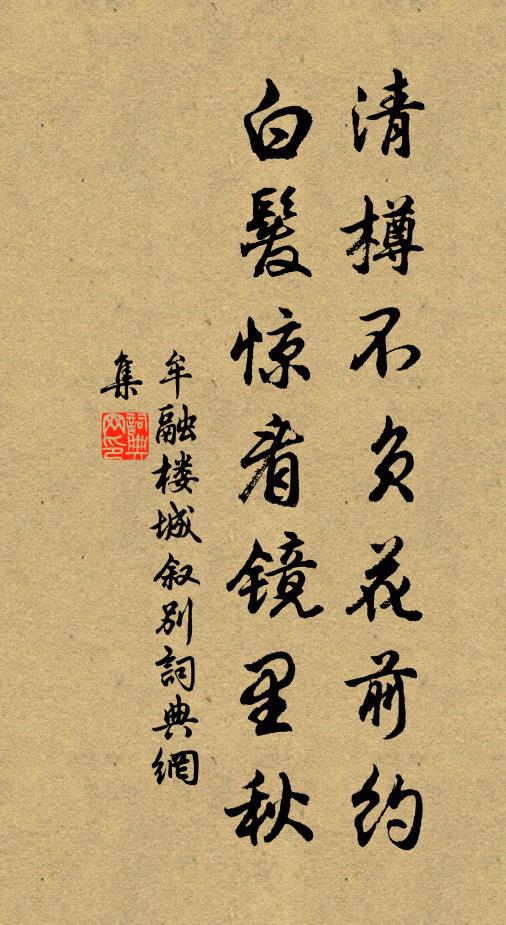 清樽不负花前约
白髮惊看镜里秋
牟融楼城叙别詞典網
集
詞典網印